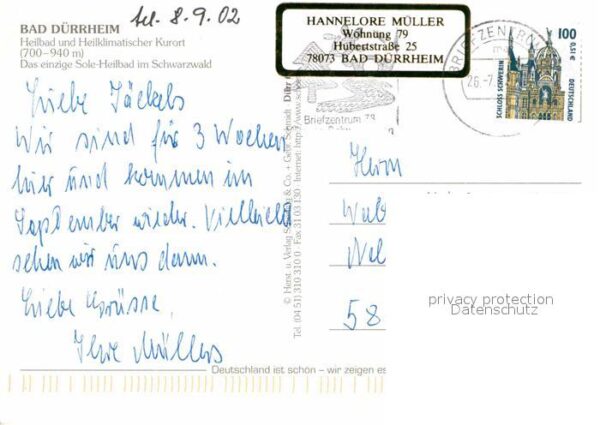 tel. 8.9.02
BAD DÜRRHEIM
Heilbad und Heilklimatischer Kurort
(700–940 m)
Das einzige Sole-Heilbad im Schwarzwald
Liebe Jäckels
Wir sind für 3 Wochen
hier und kommen im
September wieder. Vielleicht
sehen wir uns dann.
Liebe Grüsse
Ihre Müllers
HANNELORE MÜLLER
Wohnung 79
Hubertstraße 25
78073 BAD DÜRRHEIM
Briefzentrum 78
BRIEFZENTRUM
26.-7
100
0,51 €
SCHLOSS SCHWERIN
DEUTSCHLAND
Herrn
58
© Herst. u. Verlag Schöning & Co. + Gebr. Schmidt
Tel. (04 51) 310 310 Fax 31 03 130 · Internet: http://www.
privacy protection
Datenschutz
Deutschland ist schön – wir zeigen es